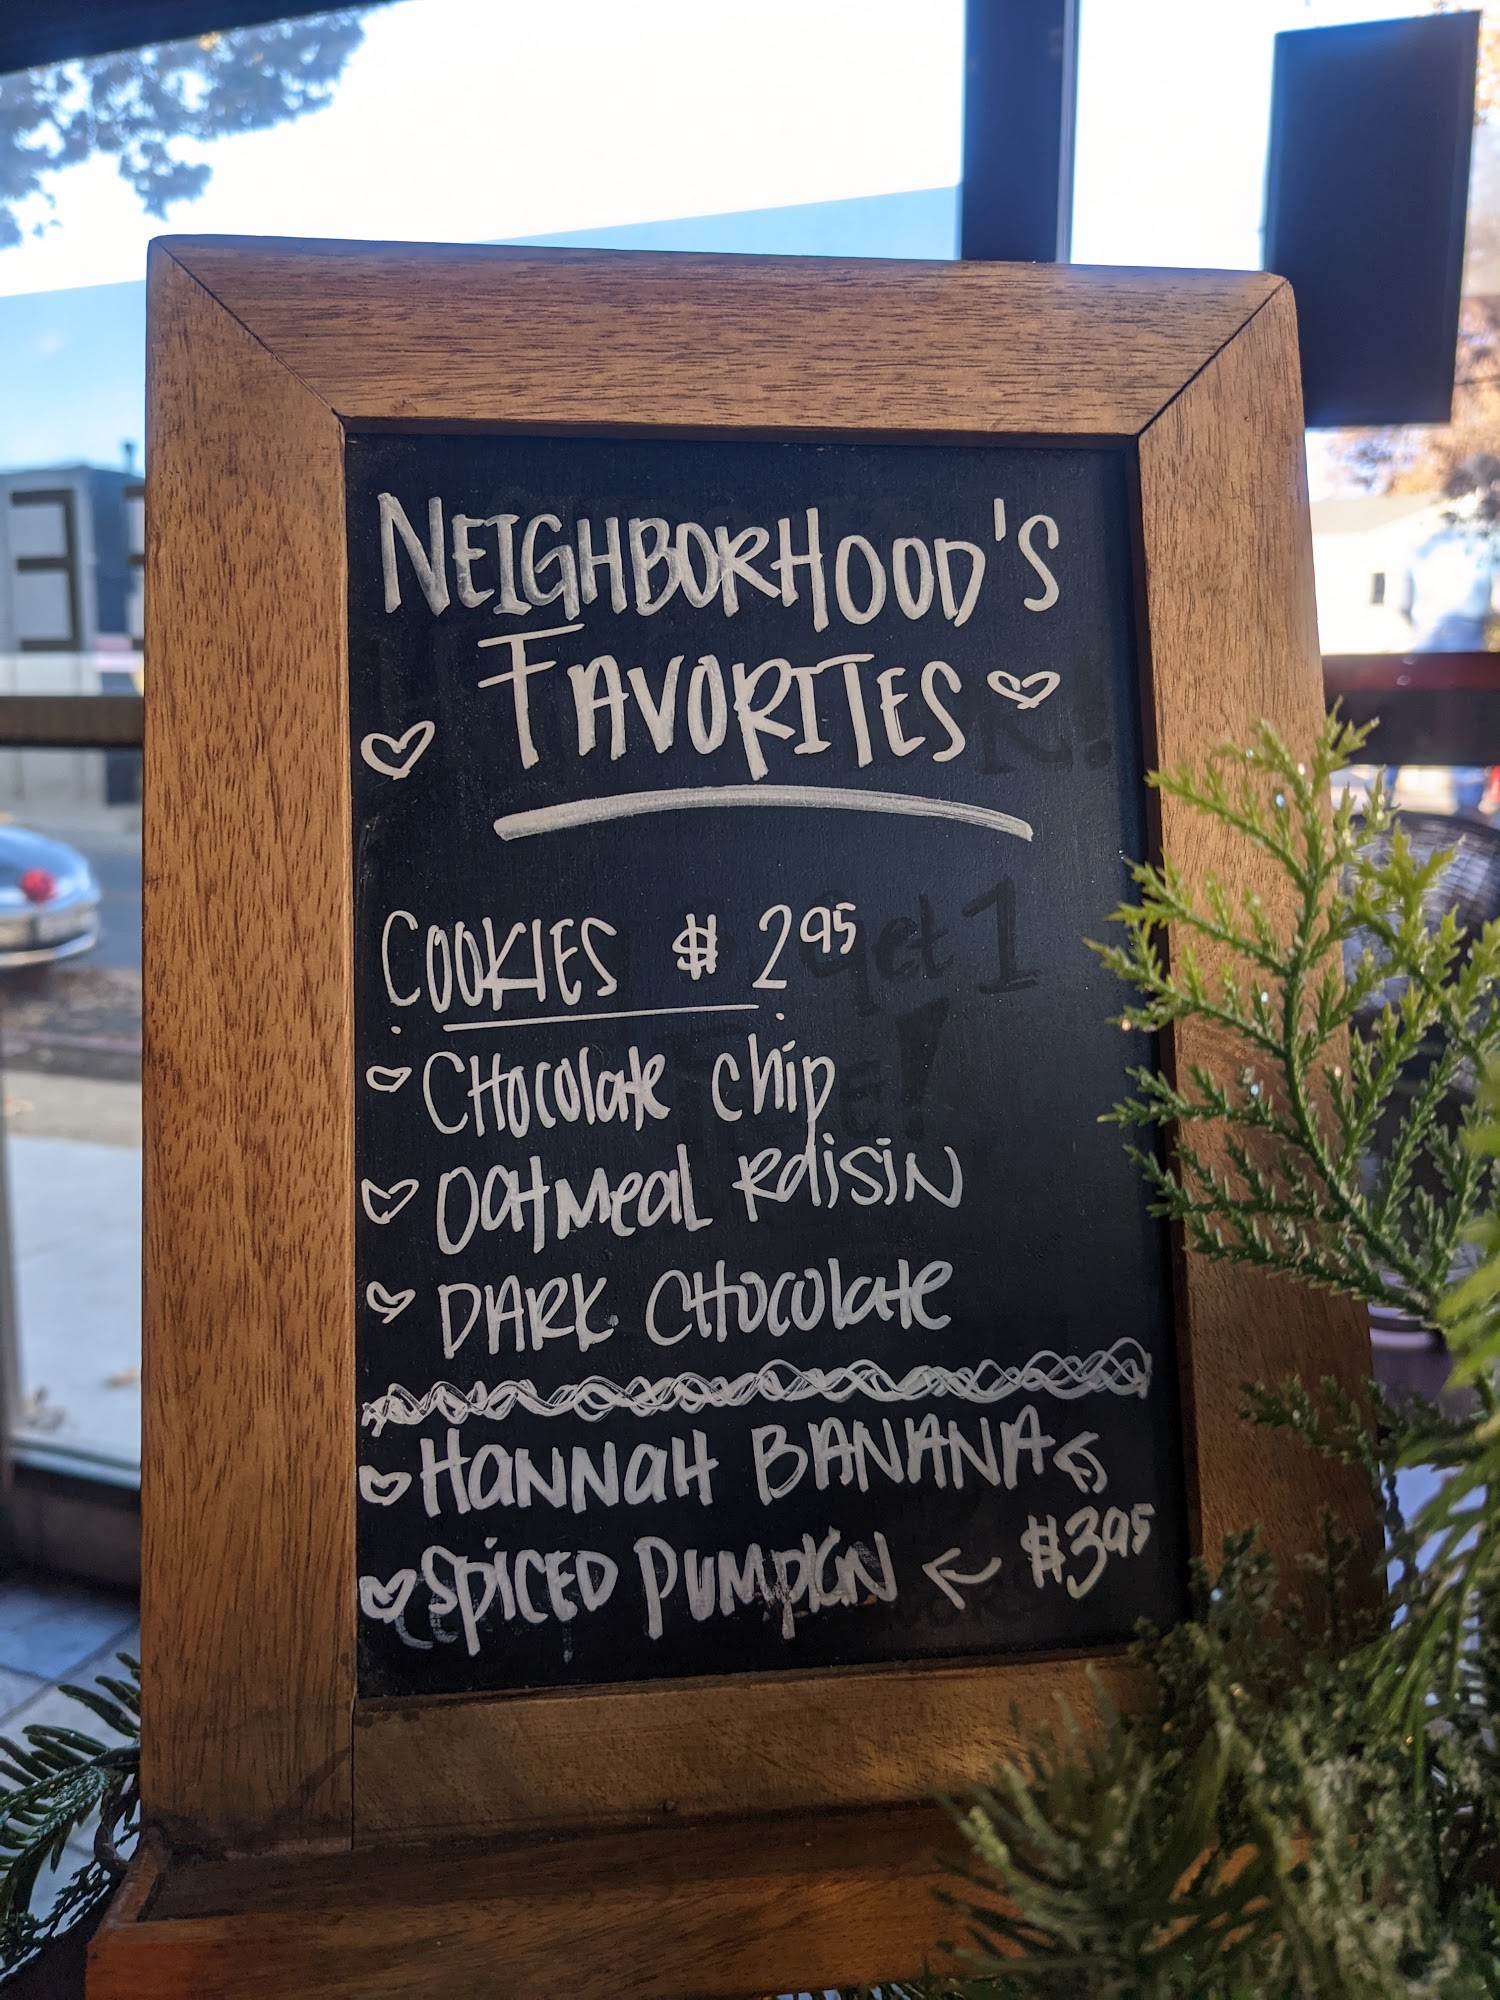 NEIGHBORHOOD'S
FAVORITES
COOKIES $ 2.95
CHocolate chip
Oatmeal Raisin
DARK CHocolate
HaNNaH BANANA
SPiCED PUMPKIN $3.95
get 1